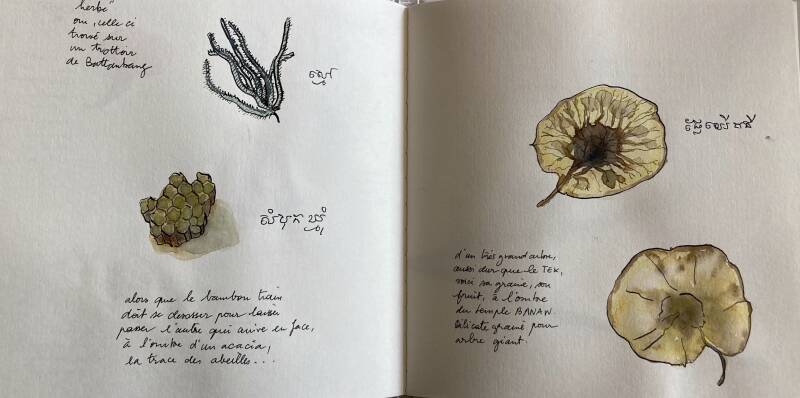 herbe"
oui, celle ci
trouvé sur
un trottoir
de Battambang
ស្មៅ
សំបុក ឃ្មុំ
alors que le bambou train
doit se desosser pour laisser
passer l'autre qui arrive en face,
à l'ombre d'un acacia,
la trace des abeilles...
ផ្លែឈើ
d'un très grand arbre,
aussi dur que le TEK,
voici sa graine, son
fruit, à l'ombre
du temple BANAN.
délicate graine pour
arbre géant.